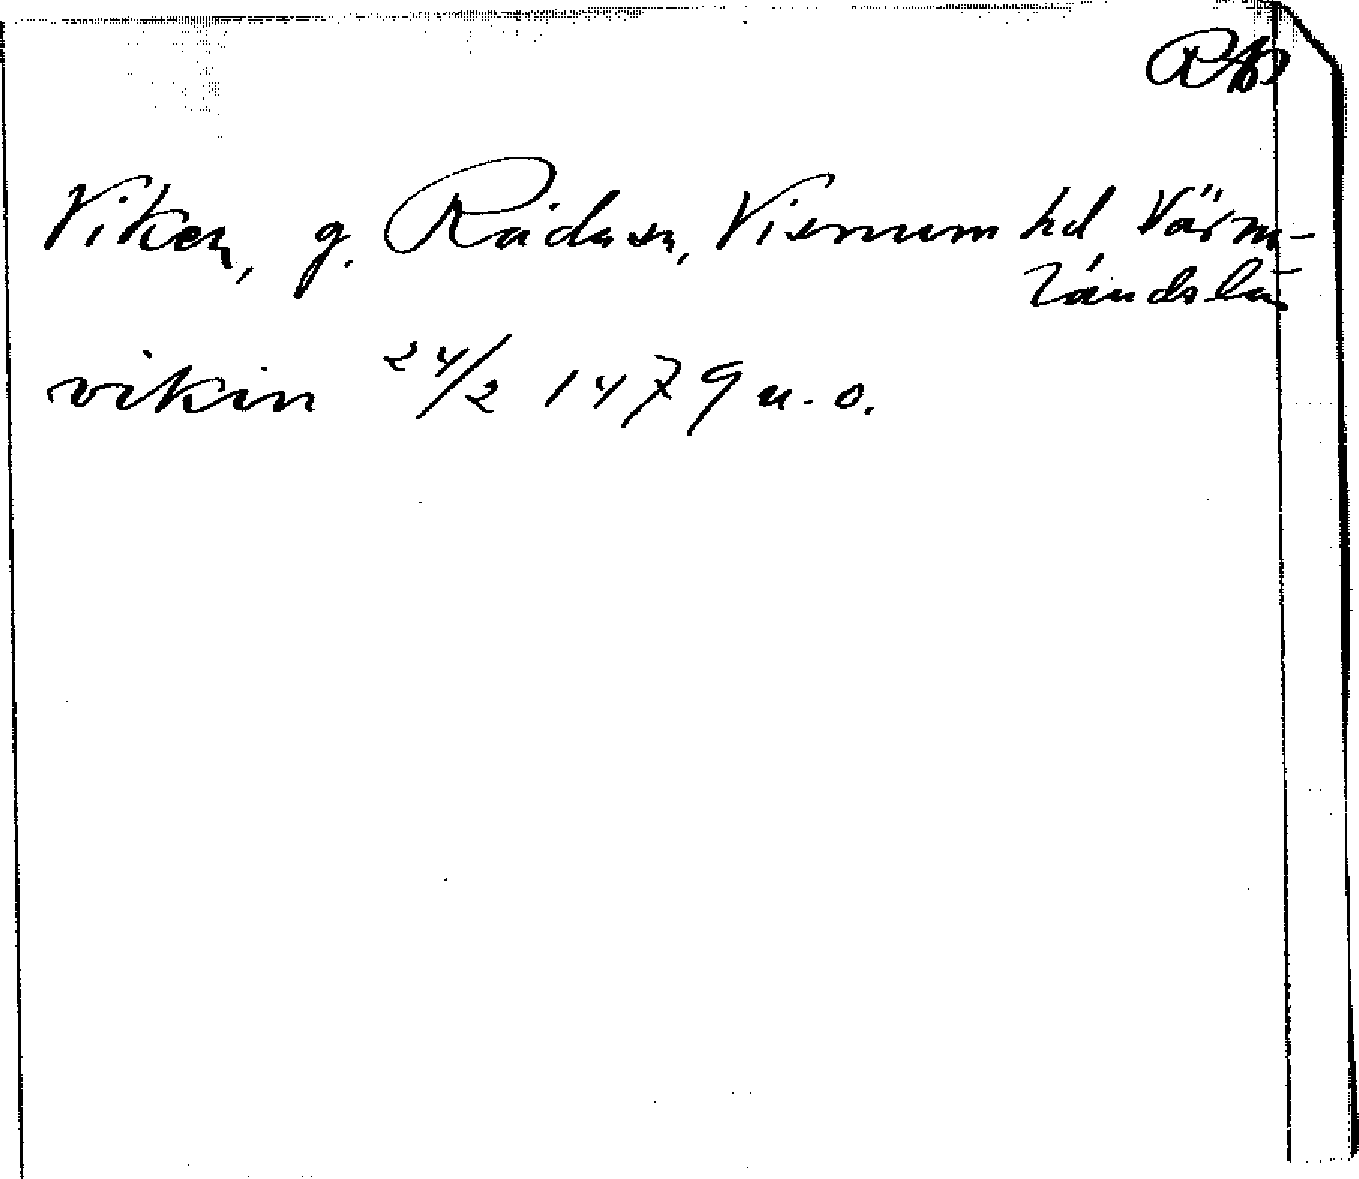 RAp
Viken, g. Rådasn, Visnum hd Värm-
lands län
vikin 24/2 1479 u. o.